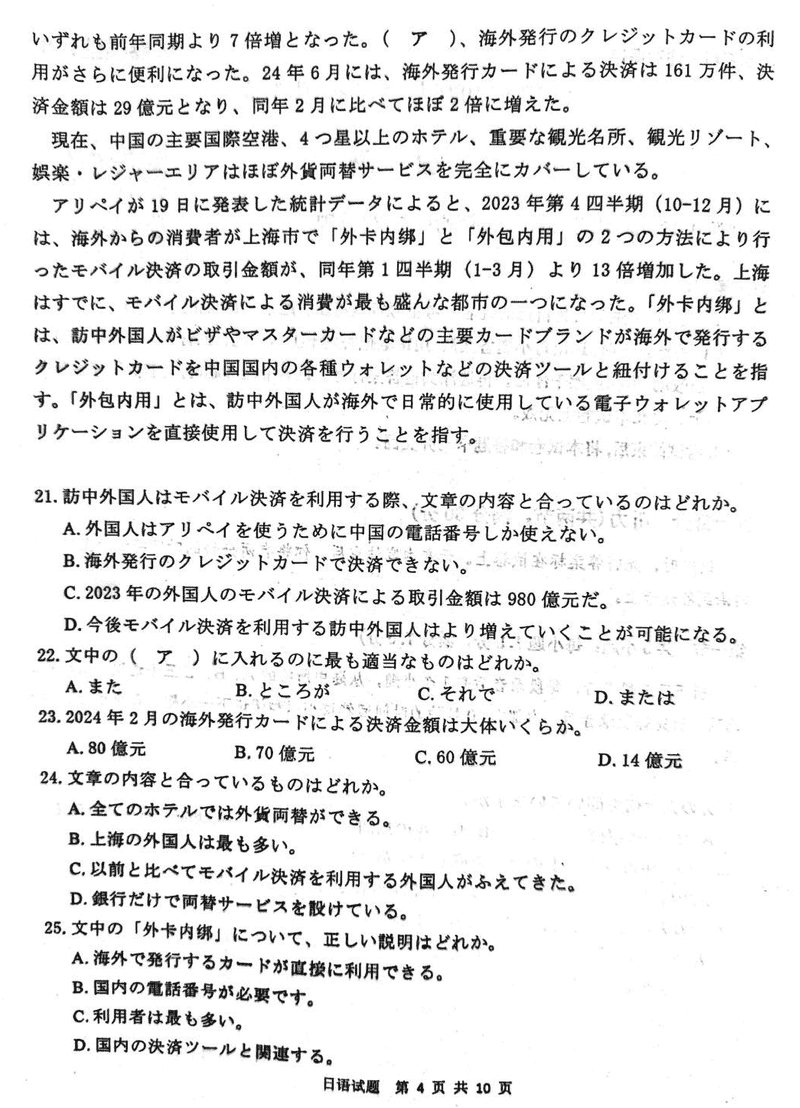 いずれも前年同期より 7 倍増となった。(　ア　)、海外発行のクレジットカードの利
用がさらに便利になった。24 年 6 月には、海外発行カードによる決済は 161 万件、決
済金額は 29 億元となり、同年 2 月に比べてほぼ 2 倍に増えた。
現在、中国の主要国際空港、4 つ星以上のホテル、重要な観光名所、観光リゾート、
娯楽・レジャーエリアはほぼ外貨両替サービスを完全にカバーしている。
アリペイが 19 日に発表した統計データによると、2023 年第 4 四半期（10-12 月）に
は、海外からの消費者が上海市で「外卡内绑」と「外包内用」の 2 つの方法により行
ったモバイル決済の取引金額が、同年第 1 四半期（1-3 月）より 13 倍増加した。上海
はすでに、モバイル決済による消費が最も盛んな都市の一つになった。「外卡内绑」と
は、訪中外国人がビザやマスターカードなどの主要カードブランドが海外で発行する
クレジットカードを中国国内の各種ウォレットなどの決済ツールと紐付けることを指
す。「外包内用」とは、訪中外国人が海外で日常的に使用している電子ウォレットアプ
リケーションを直接使用して決済を行うことを指す。
21. 訪中外国人はモバイル決済を利用する際、文章の内容と合っているのはどれか。
A. 外国人はアリペイを使うために中国の電話番号しか使えない。
B. 海外発行のクレジットカードで決済できない。
C. 2023 年の外国人のモバイル決済による取引金額は 980 億元だ。
D. 今後モバイル決済を利用する訪中外国人はより増えていくことが可能になる。
22. 文中の (　ア　) に入れるのに最も適当なものはどれか。
A. また B. ところが C. それで D. または
23. 2024 年 2 月の海外発行カードによる決済金額は大体いくらか。
A. 80 億元 B. 70 億元 C. 60 億元 D. 14 億元
24. 文章の内容と合っているものはどれか。
A. 全てのホテルでは外貨両替ができる。
B. 上海の外国人は最も多い。
C. 以前と比べてモバイル決済を利用する外国人がふえてきた。
D. 銀行だけで両替サービスを設けている。
25. 文中の「外卡内绑」について、正しい説明はどれか。
A. 海外で発行するカードが直接に利用できる。
B. 国内の電話番号が必要です。
C. 利用者は最も多い。
D. 国内の決済ツールと関連する。
日语试题 第 4 页 共 10 页